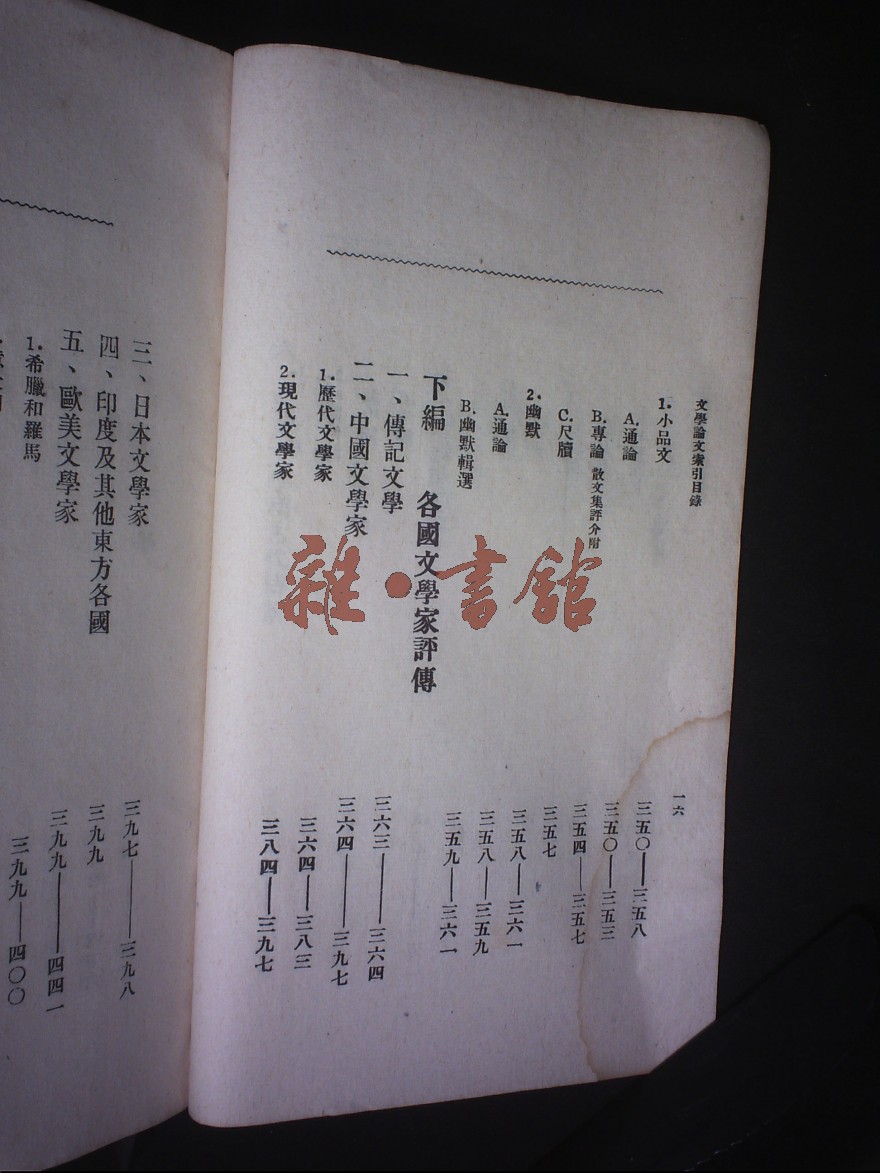 文學論文索引目錄
一六
1.小品文 三五〇——三五八
A.通論 三五〇——三五三
B.專論 散文集評介附 三五四——三五七
C.尺牘 三五七
2.幽默 三五八——三六一
A.通論 三五八——三五九
B.幽默輯選 三五九——三六一
下編 各國文學家評傳
一、傳記文學 三六三——三六四
二、中國文學家 三六四——三九七
1.歷代文學家 三六四——三八三
2.現代文學家 三八四——三九七
三、日本文學家 三九七——三九八
四、印度及其他東方各國 三九九
五、歐美文學家 三九九——四四一
1.希臘和羅馬 三九九——四〇〇
雜·書館